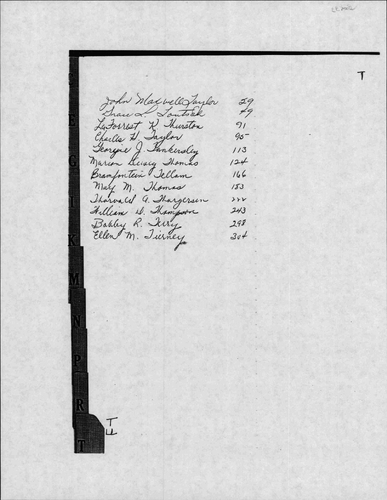 T
John Maxwell Taylor 29
Grace L. 49
DeForrest K. Thurston 71
Charles H. Taylor 95
George J. Tankersley 113
Marion Thomas 124
Bramfontein Tellam 166
May M. Thomas 183
Thorvald G. Thorgersen 222
William D. Thompson 243
Bobby R. Terry 298
Ellen M. Tierney 304
E
G
I
K
M
N
P
R
T
T